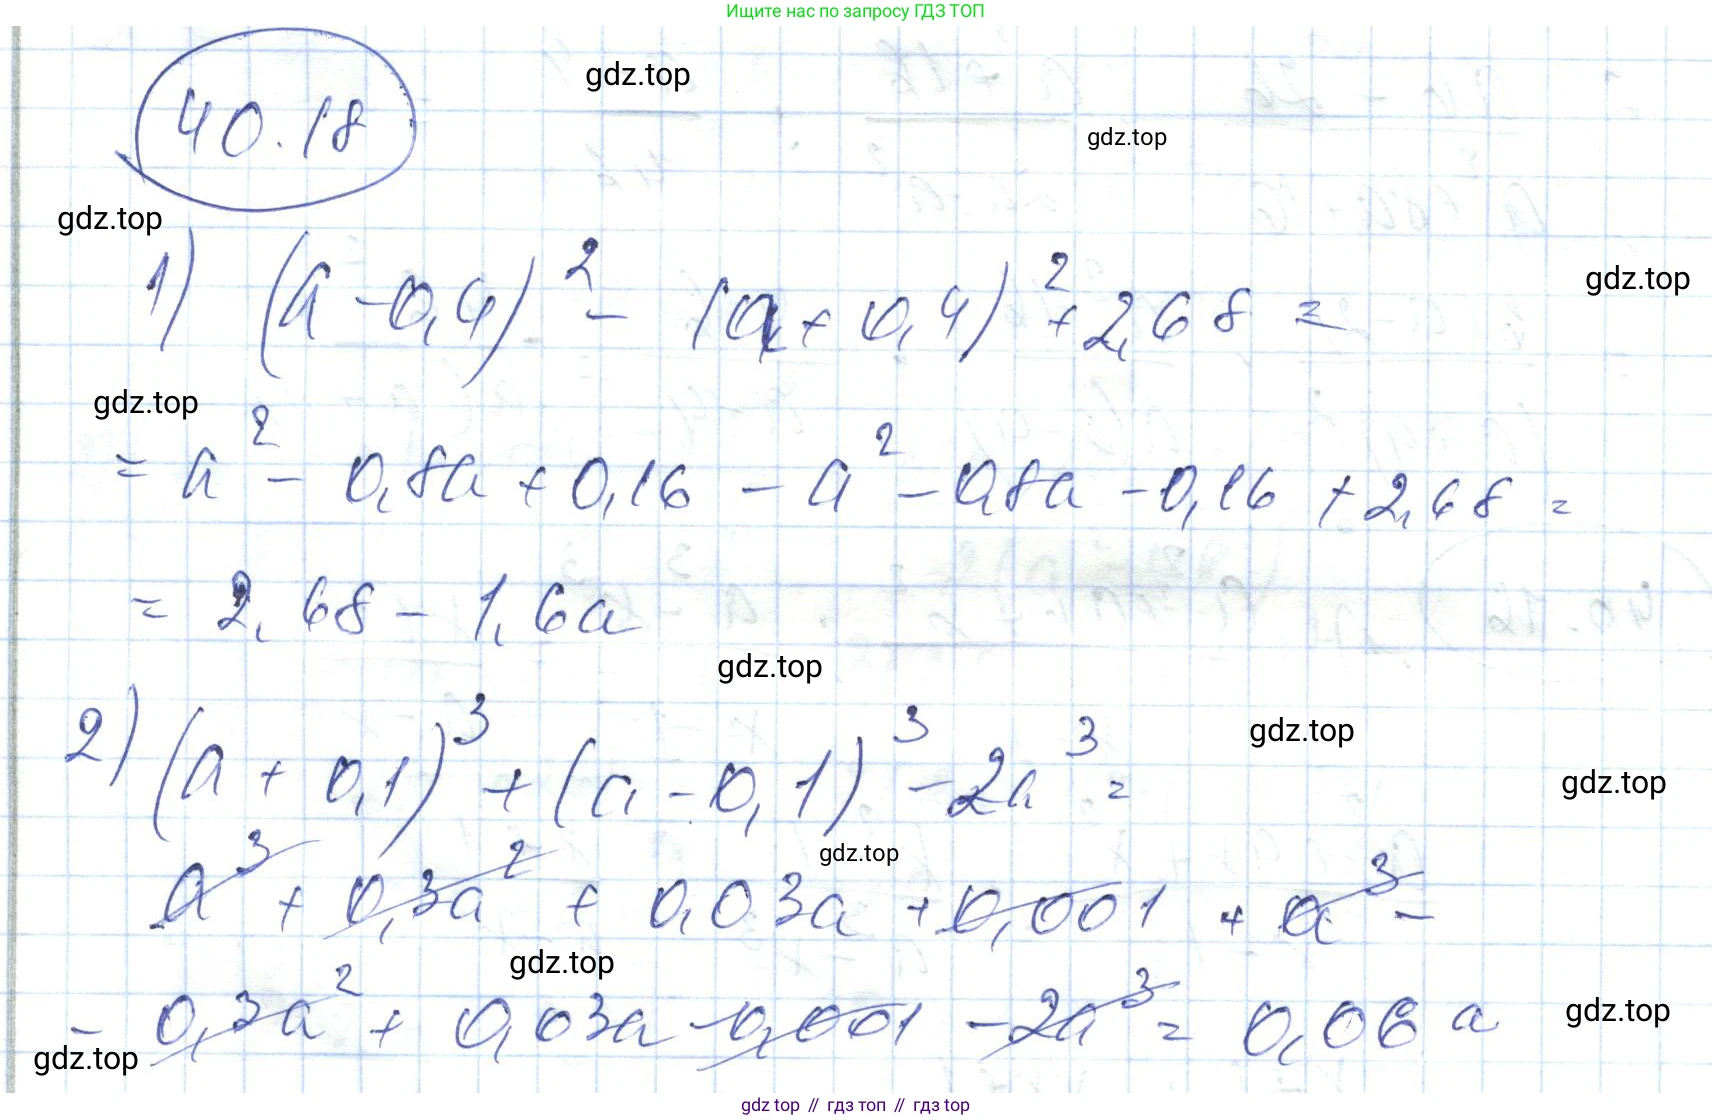 Ищите нас по запросу ГДЗ ТОП
40.18
gdz.top
gdz.top
gdz.top
1) (a - 0,4)² - (a + 0,4)² + 2,68 =
gdz.top
gdz.top
= a² - 0,8a + 0,16 - a² - 0,8a - 0,16 + 2,68 =
= 2,68 - 1,6a
gdz.top
2) (a + 0,1)³ + (a - 0,1)³ - 2a³ =
gdz.top
gdz.top
gdz.top
a³ + 0,3a² + 0,03a + 0,001 + a³ -
gdz.top
- 0,3a² + 0,03a - 0,001 - 2a³ = 0,06a
gdz.top
gdz.top
gdz.top // гдз топ // гдз.top